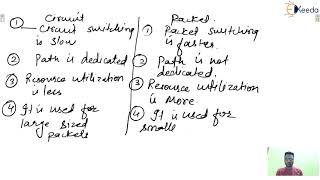 Ekeeda
Circuit
① Circuit switching
is slow
② Path is dedicated
③ Resource utilization
is less
④ It is used for
large sized
packets
Packet
① Packet switching
is faster.
② Path is not
dedicated.
③ Resource utilization
is More
④ It is used for
small